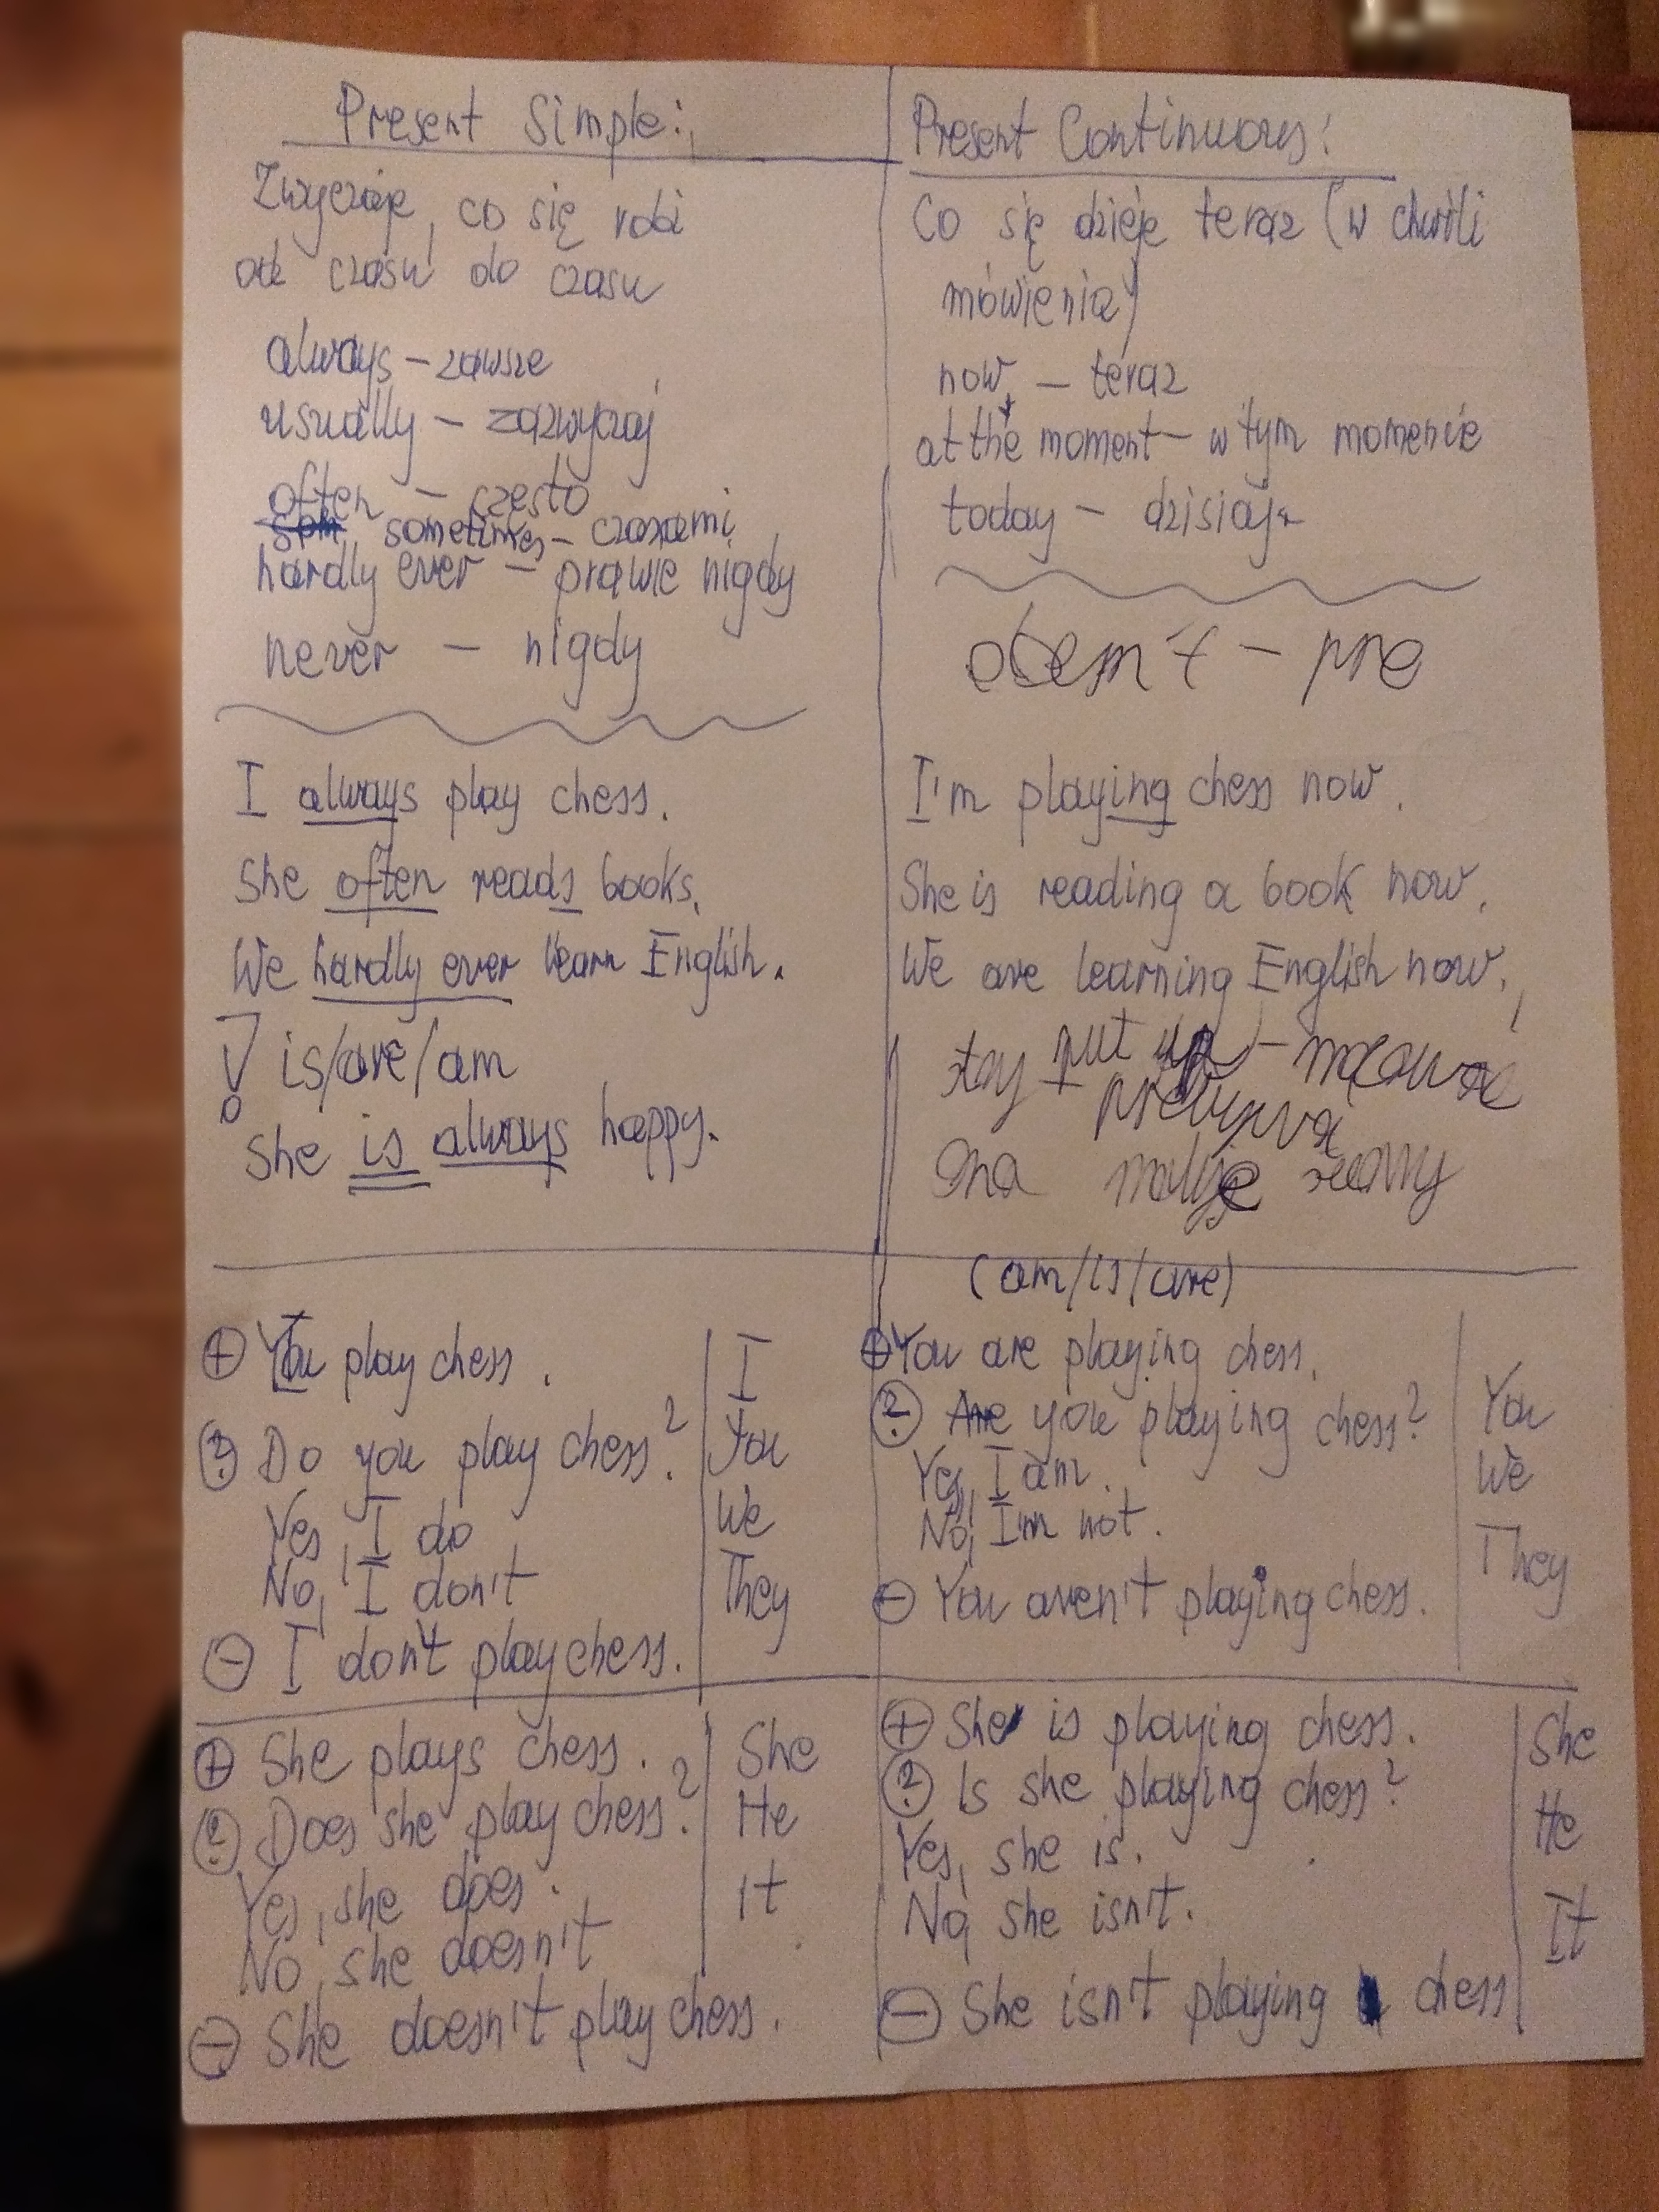 Present Simple:
Zwyczaje, co się robi
od czasu do czasu
always – zawsze
usually – zazwyczaj
often – często
sometimes – czasami
hardly ever – prawie nigdy
never – nigdy
I always play chess.
She often reads books.
We hardly ever learn English.
! is/are/am
She is always happy.
Present Continuous:
Co się dzieje teraz (w chwili
mówienia)
now – teraz
at the moment – w tym momencie
today – dzisiaj
I'm playing chess now.
She is reading a book now.
We are learning English now.
stay put up – mocować
Ona
(am/is/are)
+ You play chess.
? Do you play chess?
Yes, I do
No, I don't
- I don't play chess.
I
You
We
They
+ You are playing chess.
? Are you playing chess?
Yes, I am.
No, I'm not.
- You aren't playing chess.
You
We
They
+ She plays chess.
? Does she play chess?
Yes, she does.
No, she doesn't
- She doesn't play chess.
She
He
It
+ She is playing chess.
? Is she playing chess?
Yes, she is.
No, she isn't.
- She isn't playing chess
She
He
It